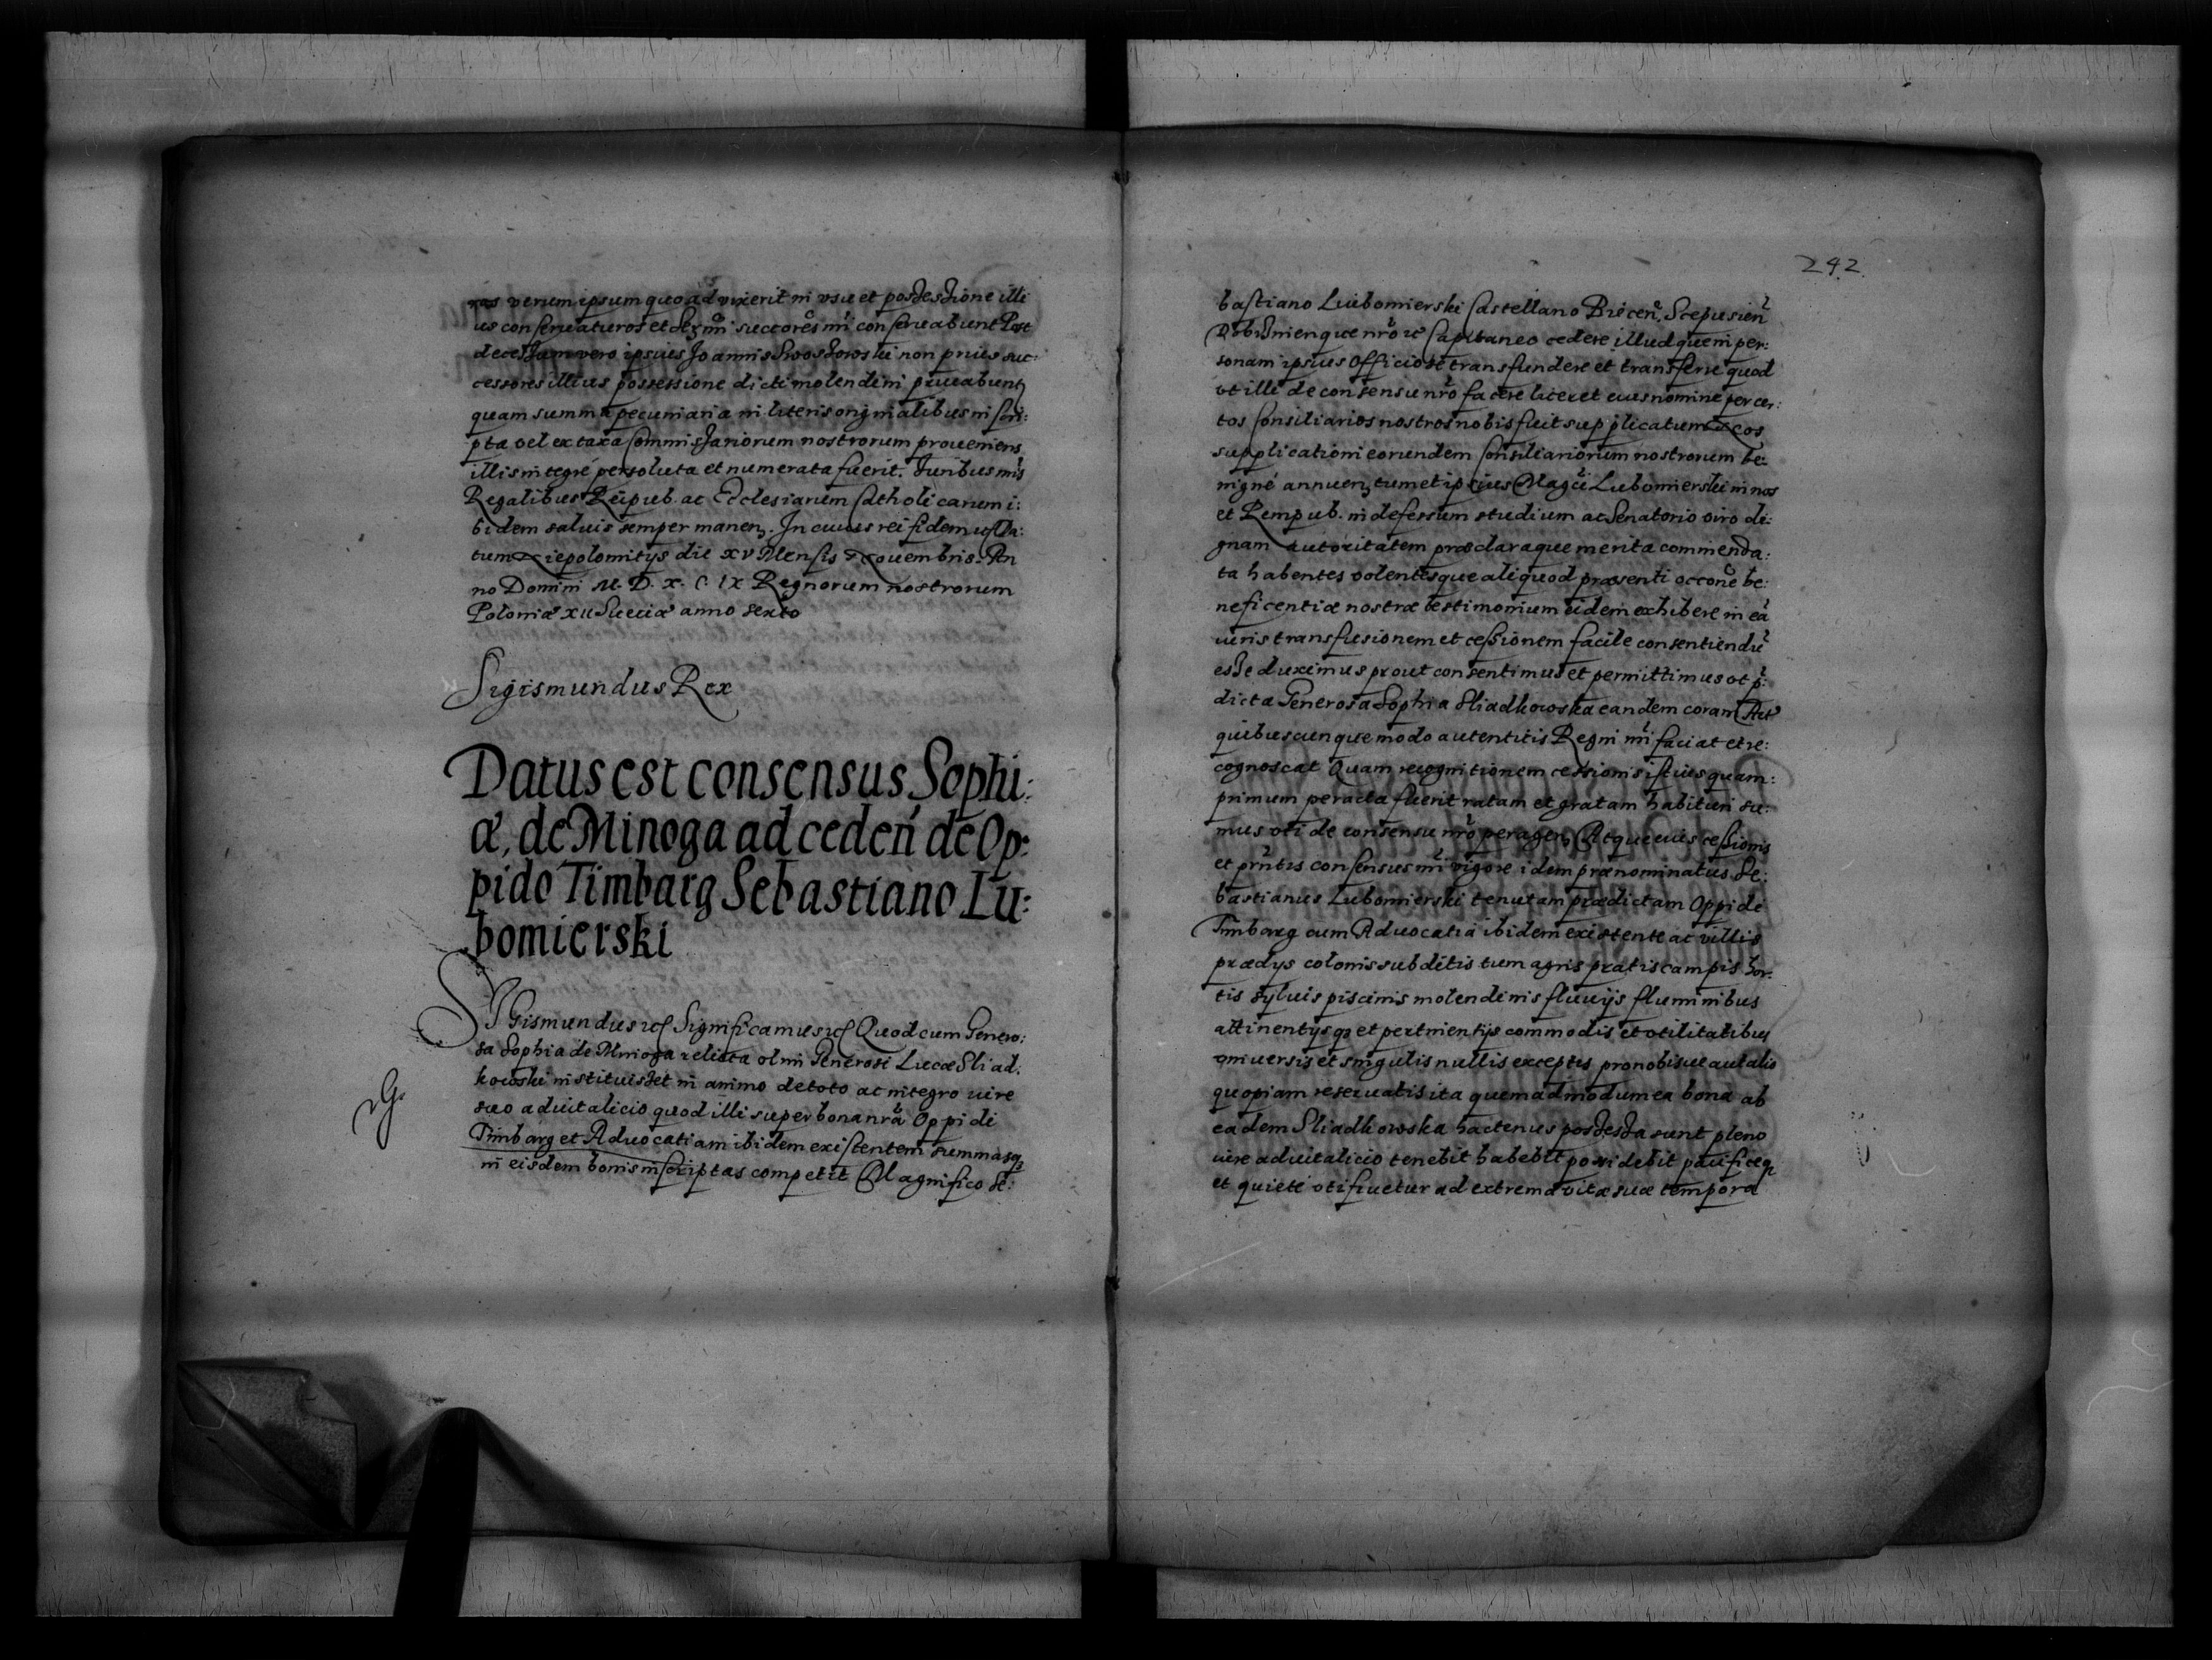 ras verum ipsum quoad vixerit in usu et possessione illi
us conservaturos et Serᵐⁱ succores nrī conservabunt Post
decessum vero ipsius Joannis non prius suc:
cessores illius possessione dicti molendini privabunt
quam summa pecuniaria in literis originalibus in scri:
pta vel ex taxa Commissariorum nostrorum proveniens
illis integré persoluta et numerata fuerit. Juribus nris
Regalibus Reipub. ac Ecclesiarum Catholicarum i:
bidem salvis semper manen. In cuius rei fidem Da:
tum Niepolomitys die xv Mensis Novembris. An
no Domini M. D. x. C. IX Regnorum nostrorum
Poloniæ xii Sueciæ anno sexto
Sigismundus Rex
Datus est consensus Sophi:
æ, de Minoga ad ceden de Op:
pido Timbarg Sebastiano Lu:
bomierski
SIGismundus Significamus Quod cum Genero:
sa Sophia de Minoga relicta olim Generosi Lucæ Sliad.
kowski instituisset in animo de toto ac integro iure
suo advitalicio quod illi super bona nra Oppidi
Timbarg et Advocatiam ibidem existentem summasq
in eisdem bonis inscriptas competit Magnifico Se:
242
bastiano Lubomierski Castellano Biecen, Scepusien
Dobczinienque nro Capitaneo cedere illudque in per:
sonam ipsius Officiose transfundere et transferre quod
ut illi de consensu nro facere liceret eius nomine per cer:
tos Consiliarios nostros nobis fuit supplicatum Nos
supplicationi eorundem Consiliariorum nostrorum be:
nigné annuen, tum et ipsius Magci Lubomierski in nos
et Rempub. indefessum studium ac Senatorio viro di:
gnam autoritatem præclaraque merita commenda:
ta habentes volentesque aliquod præsenti occone be:
neficentiæ nostræ testimonium eidem exhibere in ea
iuris transfusionem et cessionem facile consentiendu
esse duximus prout consentimus et permittimus ut p:
dicta Generosa Sophia Sliadkowska eandem coram Act
quibuscunque modo autentitis Regni nri faciat et re:
cognoscat Quam recognitionem cessionis istius quam:
primum peracta fuerit ratam et gratam habituri su:
mus uti de consensu nro peragen, Atque eius cessionis
et prntis consensus nri vigore idem prænominatus Se:
bastianus Lubomierski tenutam prædictam Oppidi
Timbarg cum Advocatia ibidem existente ac villis
prædys colonis subditis tum agris pratis campis hor:
tis sylvis piscinis molendinis fluvijs fluminibus
attinentysq et pertinentijs commodis et utilitatibus
universis et singulis nullis exceptis pro nobisve aut alio
quopiam reservatis ita quemadmodum ea bona ab
eadem Sliadkowska hactenus possessa sunt pleno
iure advitalicio tenebit habebit possidebit pacificeq
et quiete utifruetur ad extrema vitæ suæ tempora